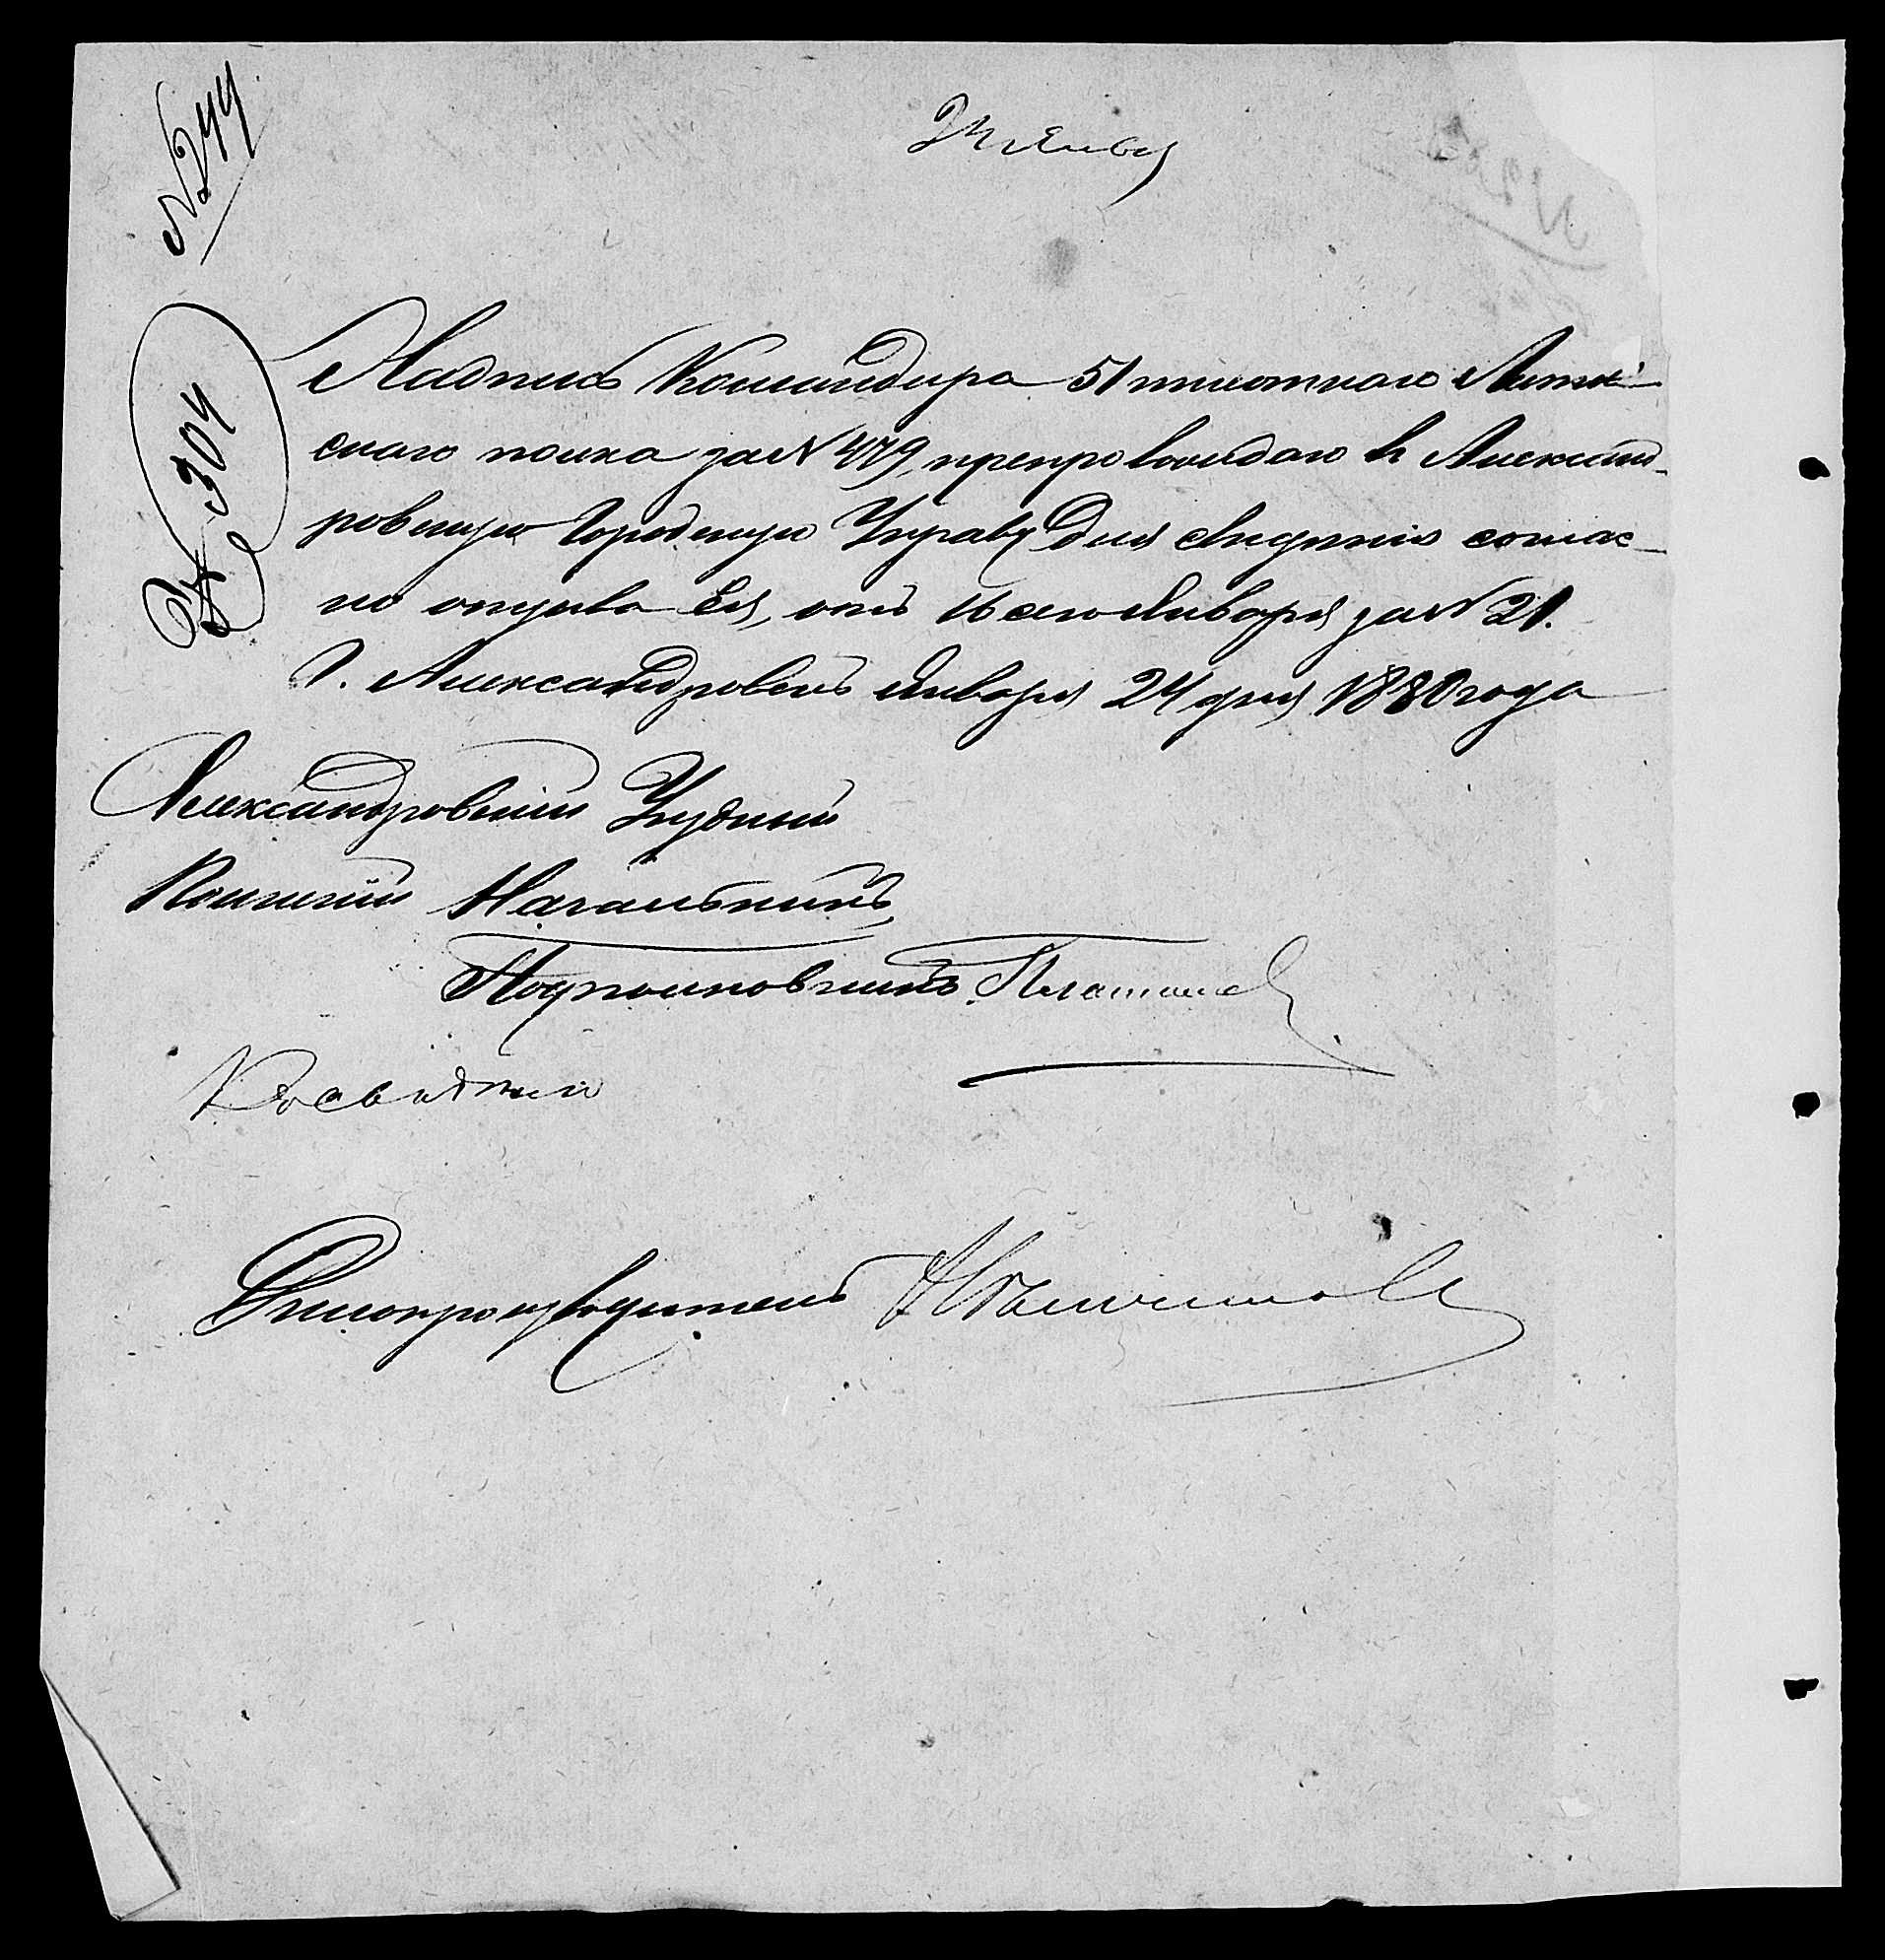 № 244
24 Янв
№ 304
Надпись Командира 51 пехотнаго Литов-
скаго полка за № 479, препровождаю въ Александ-
ровскую Городскую Управу для свѣдѣнія соглас-
но отзыва Ея, отъ 16 сего Января за № 21.
Г. Александровскъ Января 24 дня 1880 года
Александровскій Уѣздный
Полицейскій Начальникъ,
Подполковникъ
Къ свѣдѣнію
Дѣлопроизводитель